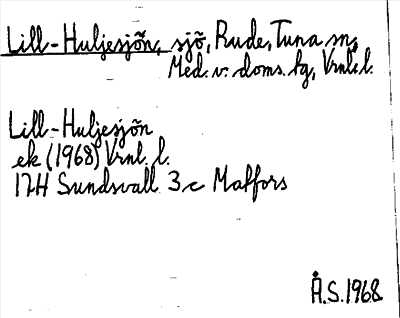 Lill-Huljesjön, sjö, Rude, Tuna sn,
Med. v. doms. tg, Vrnl. l.
Lill-Huljesjön
ek (1968) Vrnl. l.
17H Sundsvall 3c Matfors
Å.S. 1968